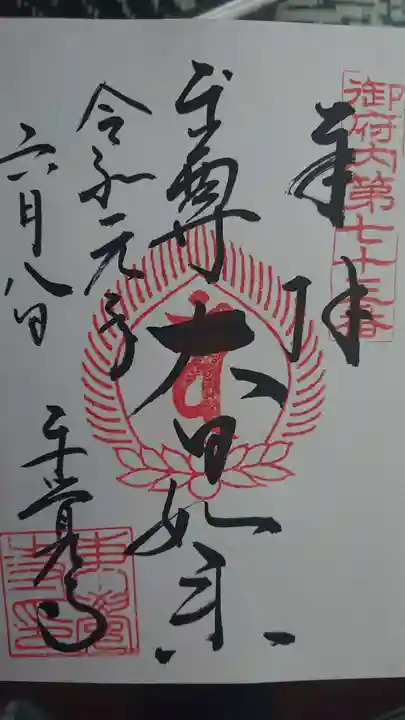 御府内第七十三番
奉拝
本尊大日如来
令和元年
六月八日
東覚寺